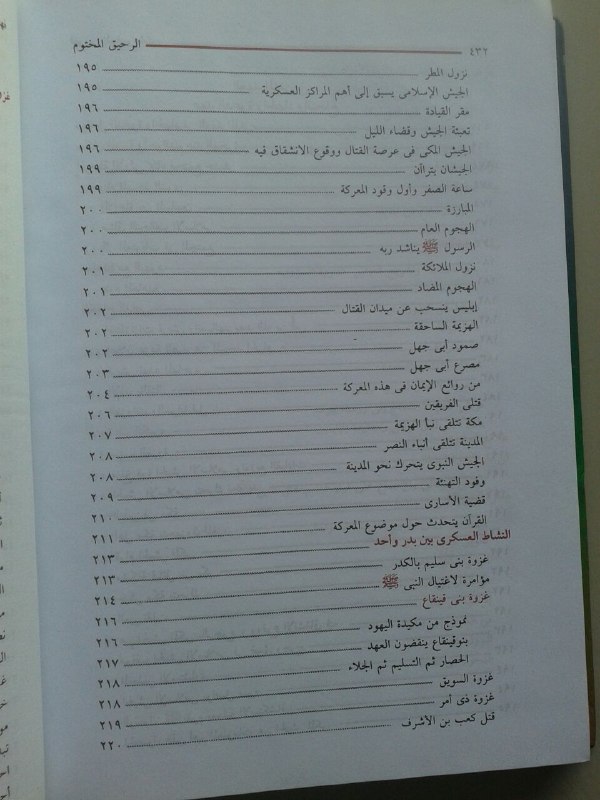 ٤٣٢ الرحيق المختوم
نزول المطر ١٩٥
الجيش الإسلامى يسبق إلى أهم المراكز العسكرية ١٩٥
مقر القيادة ١٩٦
تعبئة الجيش وقضاء الليل ١٩٦
الجيش المكى فى عرصة القتال ووقوع الانشقاق فيه ١٩٦
الجيشان يتراآن ١٩٩
ساعة الصفر وأول وقود المعركة ١٩٩
المبارزة ٢٠٠
الهجوم العام ٢٠٠
الرسول ﷺ يناشد ربه ٢٠٠
نزول الملائكة ٢٠١
الهجوم المضاد ٢٠١
إبليس ينسحب عن ميدان القتال ٢٠٢
الهزيمة الساحقة ٢٠٢
صمود أبى جهل ٢٠٢
مصرع أبى جهل ٢٠٣
من روائع الإيمان فى هذه المعركة ٢٠٤
قتلى الفريقين ٢٠٦
مكة تتلقى نبأ الهزيمة ٢٠٧
المدينة تتلقى أنباء النصر ٢٠٨
الجيش النبوى يتحرك نحو المدينة ٢٠٨
وفود التهنئة ٢٠٩
قضية الأسارى ٢١٠
القرآن يتحدث حول موضوع المعركة ٢١١
النشاط العسكرى بين بدر وأحد ٢١٣
غزوة بنى سليم بالكدر ٢١٣
مؤامرة لاغتيال النبى ﷺ ٢١٤
غزوة بنى قينقاع ٢١٦
نموذج من مكيدة اليهود ٢١٦
بنوقينقاع ينقضون العهد ٢١٧
الحصار ثم التسليم ثم الجلاء ٢١٨
غزوة السويق ٢١٨
غزوة ذى أمر ٢١٩
قتل كعب بن الأشرف ٢٢٠